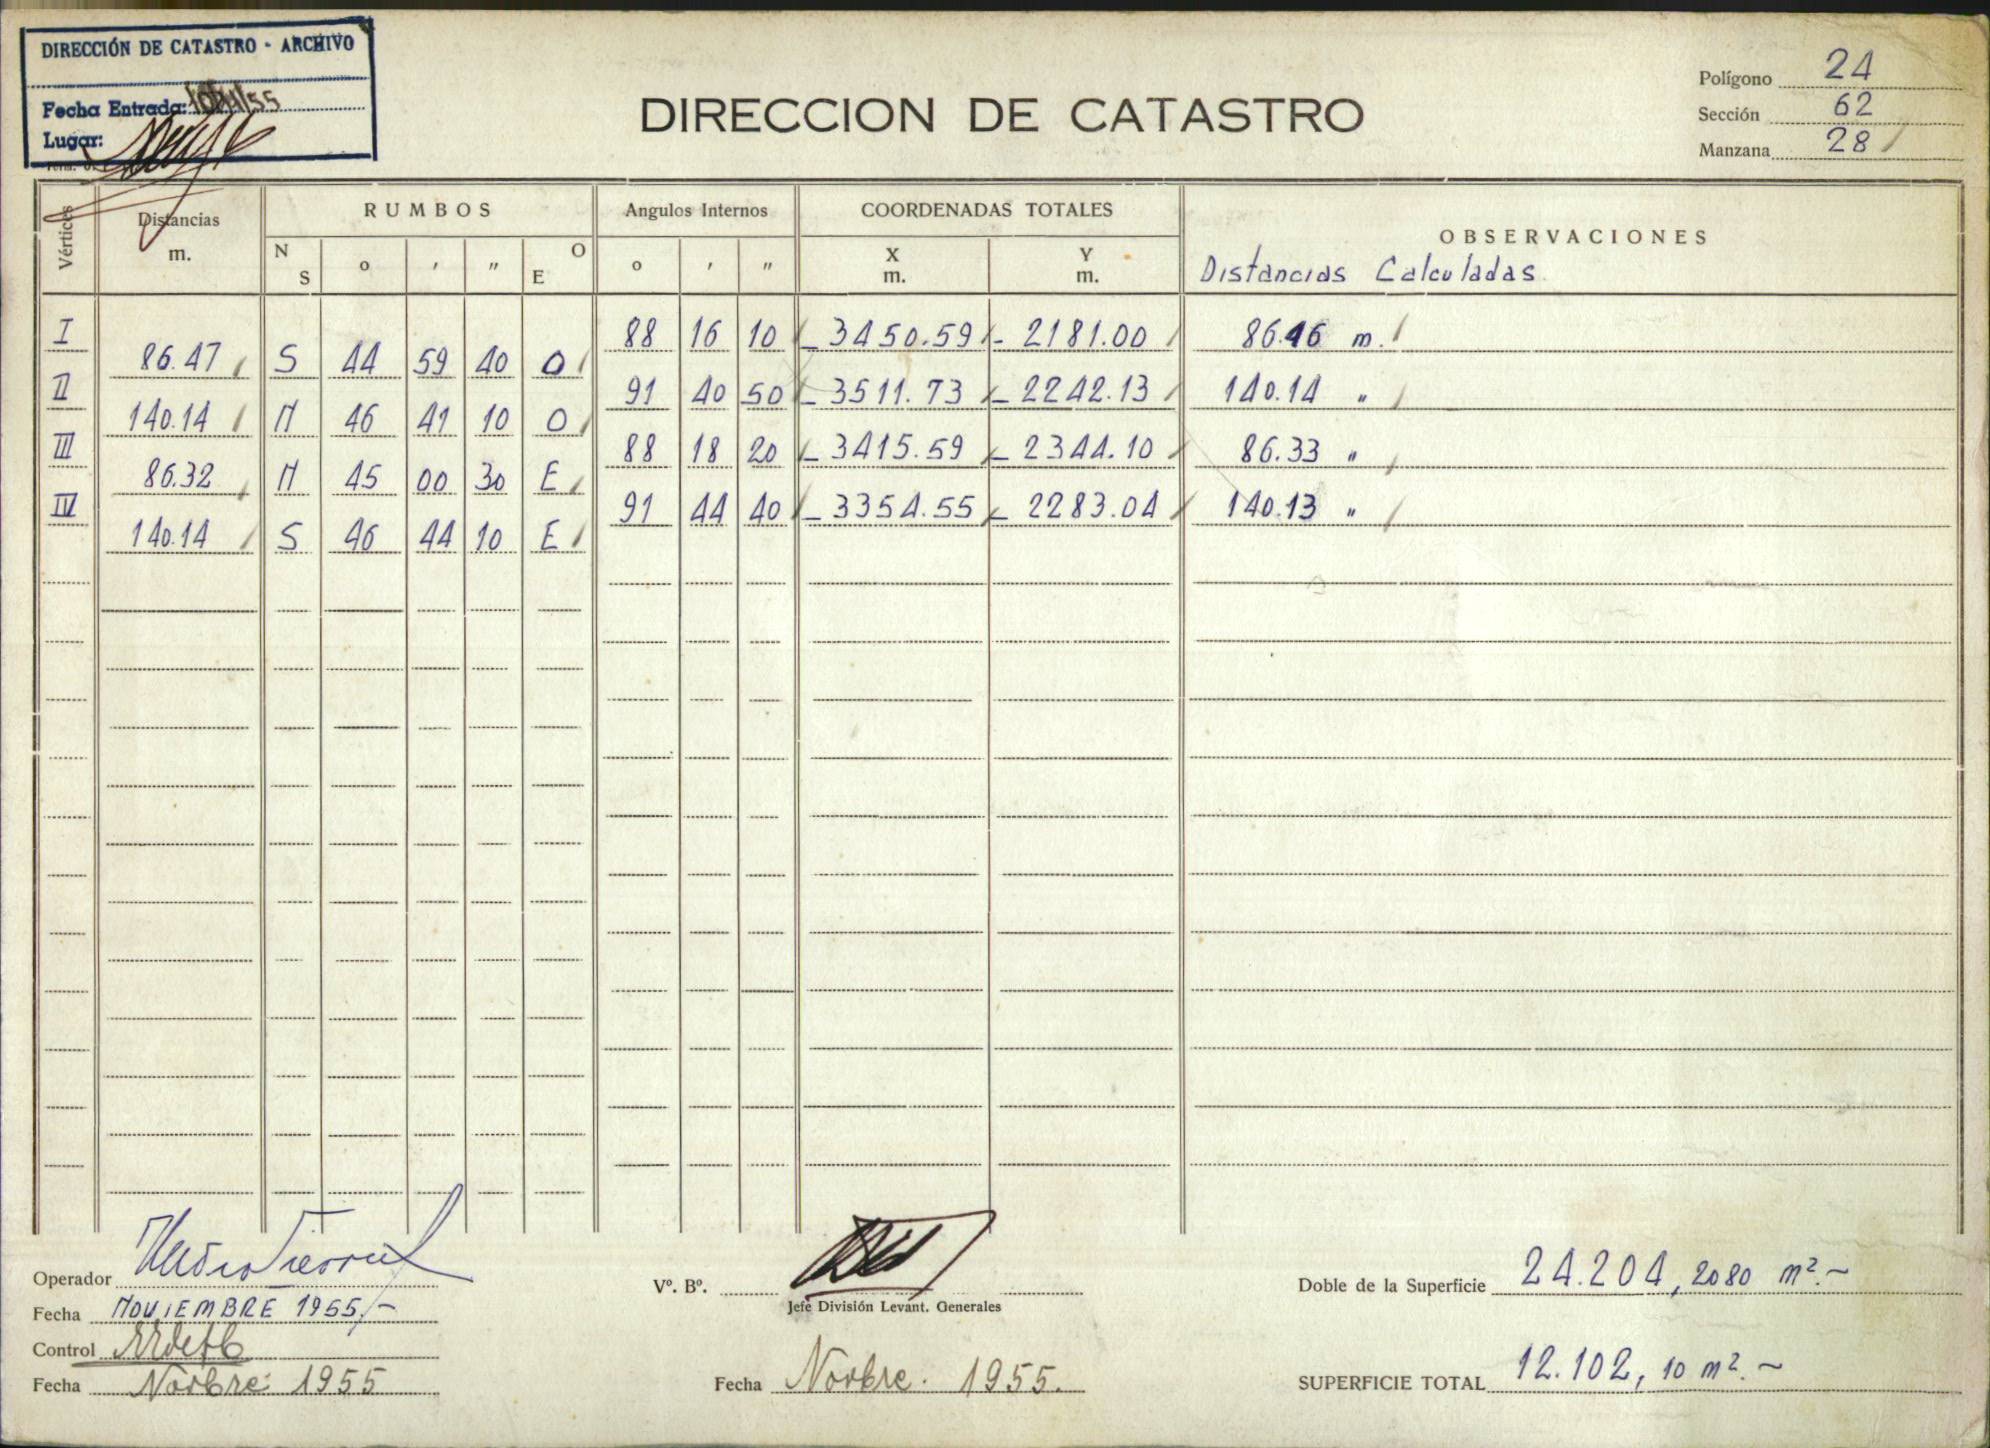 DIRECCIÓN DE CATASTRO - ARCHIVO
Fecha Entrada:
Lugar:
DIRECCION DE CATASTRO
Polígono 24
Sección 62
Manzana 28
Vértices
Distancias m.
RUMBOS
N S ° ' " O E
Angulos Internos
° ' "
COORDENADAS TOTALES
X m. Y m.
OBSERVACIONES
Distancias Calculadas
I 88 16 10 - 3450.59 - 2181.00 86.46 m.
86.47 S 44 59 40 O
II 91 40 50 - 3511.73 - 2242.13 140.14 "
140.14 N 46 41 10 O
III 88 18 20 - 3415.59 - 2344.10 86.33 "
86.32 N 45 00 30 E
IV 91 44 40 - 3354.55 - 2283.04 140.13 "
140.14 S 46 44 10 E
Operador
Fecha NOVIEMBRE 1955.-
Control
Fecha Novbre. 1955
Vº. Bº.
Jefe División Levant. Generales
Fecha Novbre. 1955.
Doble de la Superficie 24.204,2080 m².-
SUPERFICIE TOTAL 12.102,10 m².-